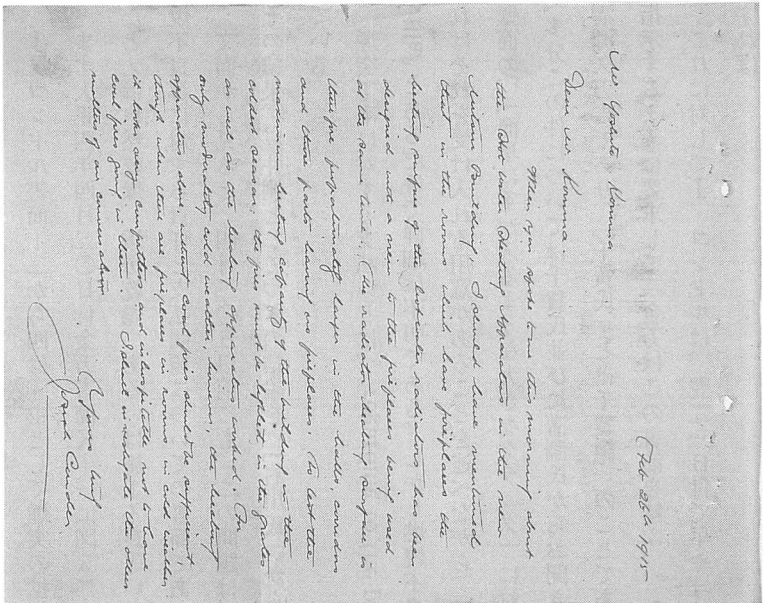 Feb 26th 1915
Mr. Yokichi Honma
Dear Mr. Honma.
When you spoke to me this morning about
the Hot Water Heating Apparatus in the new
Mitsui Building, I should have mentioned
that in the rooms which have fireplaces the
heating surface of the hot water radiators has been
designed with a view to the fireplaces being used
at the same time. The radiator heating surface is
therefore proportionately larger in the halls, corridors
and those parts having no fireplaces. To test the
maximum heating capacity of the building in the
coldest season, the fires must be lighted in the grates
as well as the heating apparatus worked. In
only moderately cold weather, however, the heating
apparatus alone without coal fires should be sufficient,
though when there are fireplaces in rooms in cold weather
it looks very comfortless and inhospitable not to have
coal fires going in them. I shall investigate the other
matters of our conversation
Yours truly
Josiah Conder